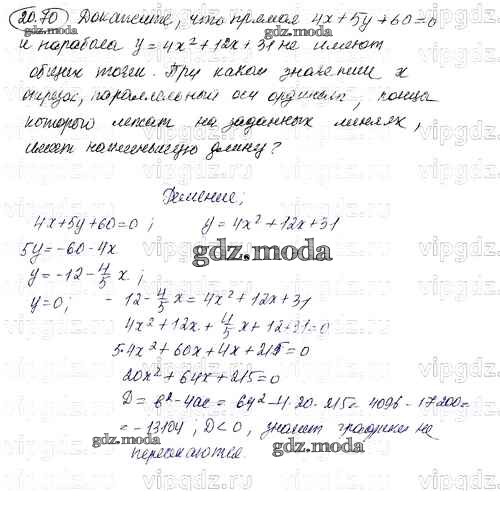 20.70) Докажите, что прямая 4x+5y+60=0
и парабола y=4x²+12x+31 не имеют
общих точек. При каком значении x
отрезок, параллельный оси ординат, концы
которого лежат на заданных линиях,
имеет наименьшую длину?
Решение;
4x+5y+60=0; y=4x²+12x+31
5y=-60-4x
gdz.moda
y=-12-4/5x;
y=0; -12-4/5x=4x²+12x+31
4x²+12x+4/5x+12+31=0
5·4x²+60x+4x+215=0
20x²+64x+215=0
D=b²-4ac=64²-4·20·215=4096-17200=
=-13104; D<0, значит графики не
пересекаются.
gdz.moda
gdz.moda
gdz.moda